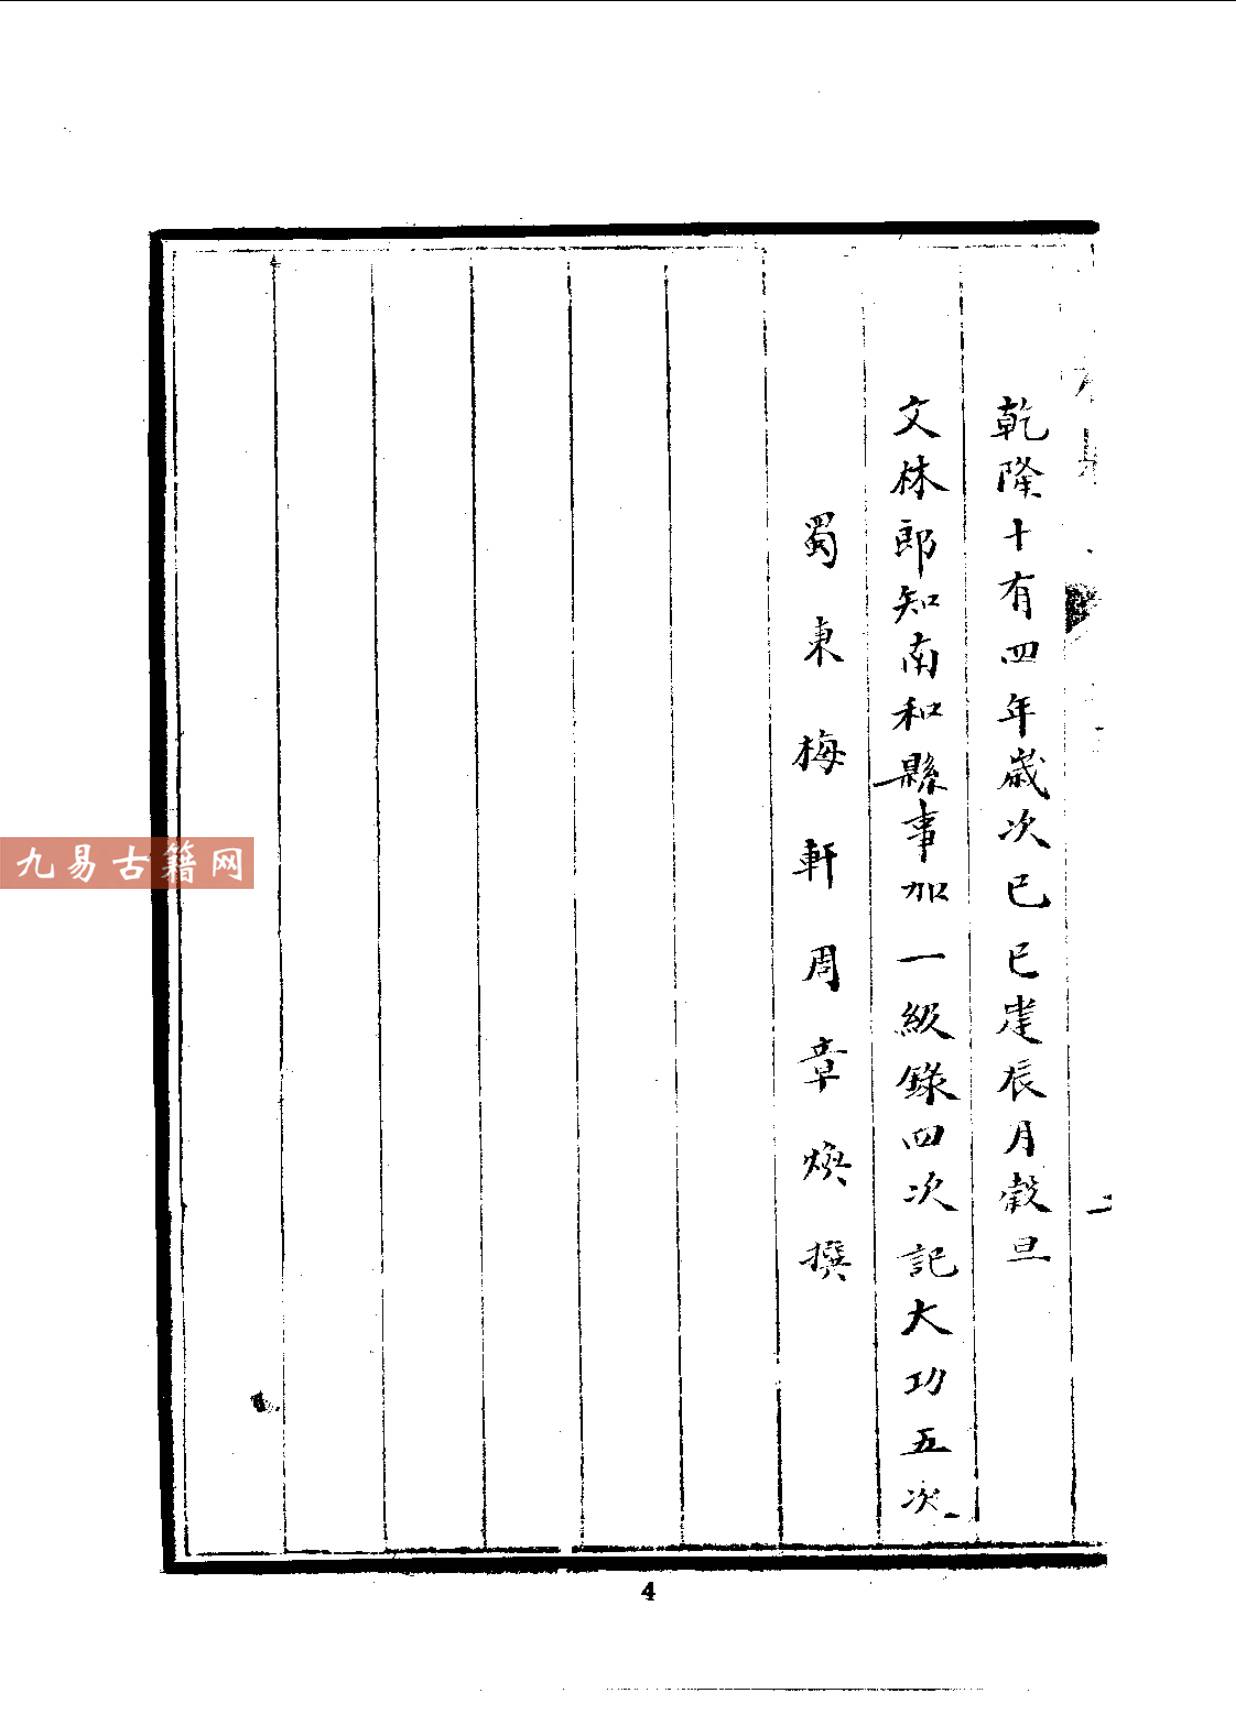 乾隆十有四年歲次己巳建辰月穀旦
文林郎知南和縣事加一級錄四次記大功五次
蜀東梅軒周章煥撰
九易古籍网
4